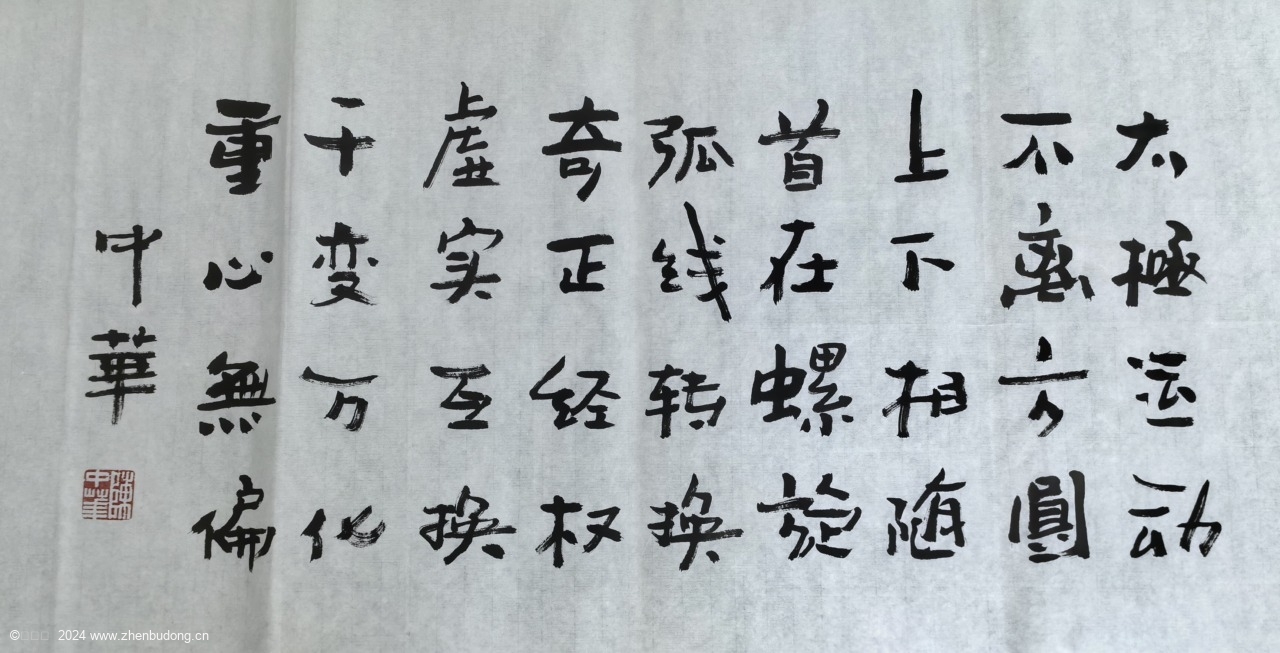 太極运动
不離方圓
上下相随
首在螺旋
弧线转换
奇正经权
虚实互换
千变万化
重心無偏
中華
陳中華
© 2024 www.zhenbudong.cn